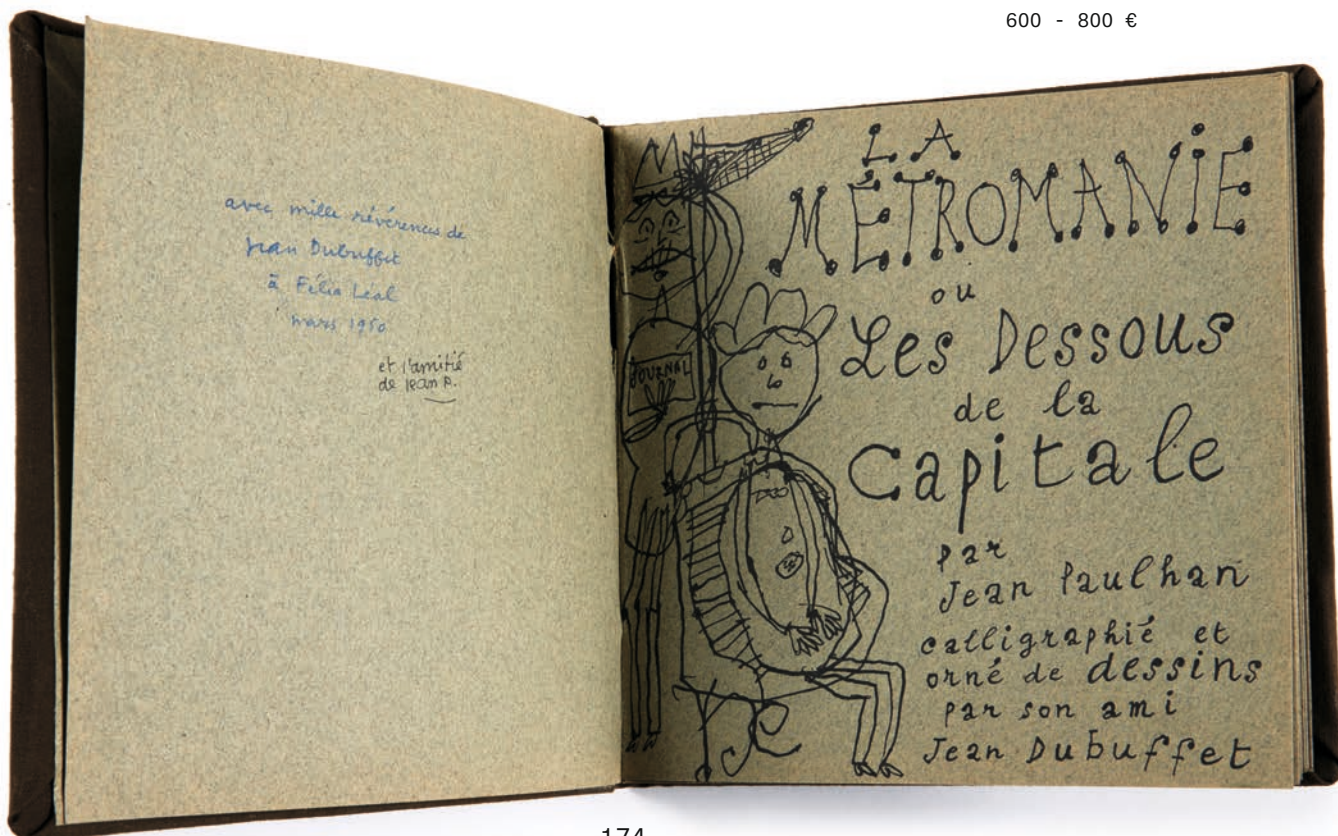 600 - 800 €
avec mille révérences de
Jean Dubuffet
à Félia Leal
mars 1950
et l'amitié
de Jean P.
JOURNAL
LA
MÉTROMANIE
ou
Les Dessous
de la
Capitale
par
Jean Paulhan
calligraphié et
orné de dessins
par son ami
Jean Dubuffet
174